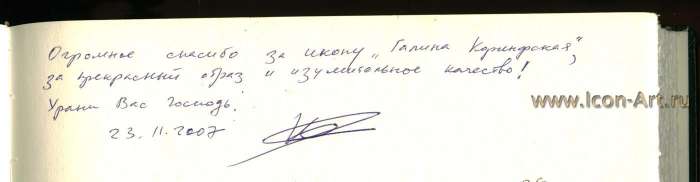 Огромное спасибо за икону „Галина Коринфская“,
за прекрасный образ и изумительное качество!
Храни Вас Господь.
23.11.2007
www.Icon-Art.ru